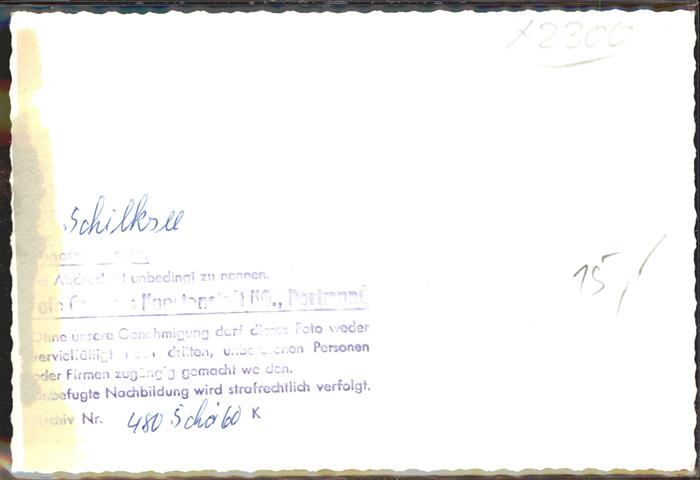 x2300
Schilksee
Abdruck ist unbedingt zu nennen.
KG., Dortmund
Ohne unsere Genehmigung darf dieses Foto weder
vervielfältigt noch dritten, Personen
oder Firmen zugängig gemacht werden.
Unbefugte Nachbildung wird strafrechtlich verfolgt.
Archiv Nr. 480 Schö 60 K
15,-